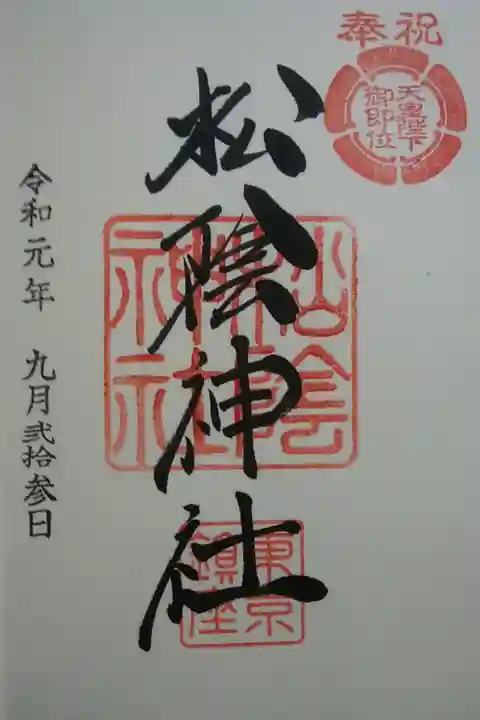 奉祝
天皇陛下
御即位
松陰神社
松陰神社
東京
鎮座
令和元年 九月弐拾参日